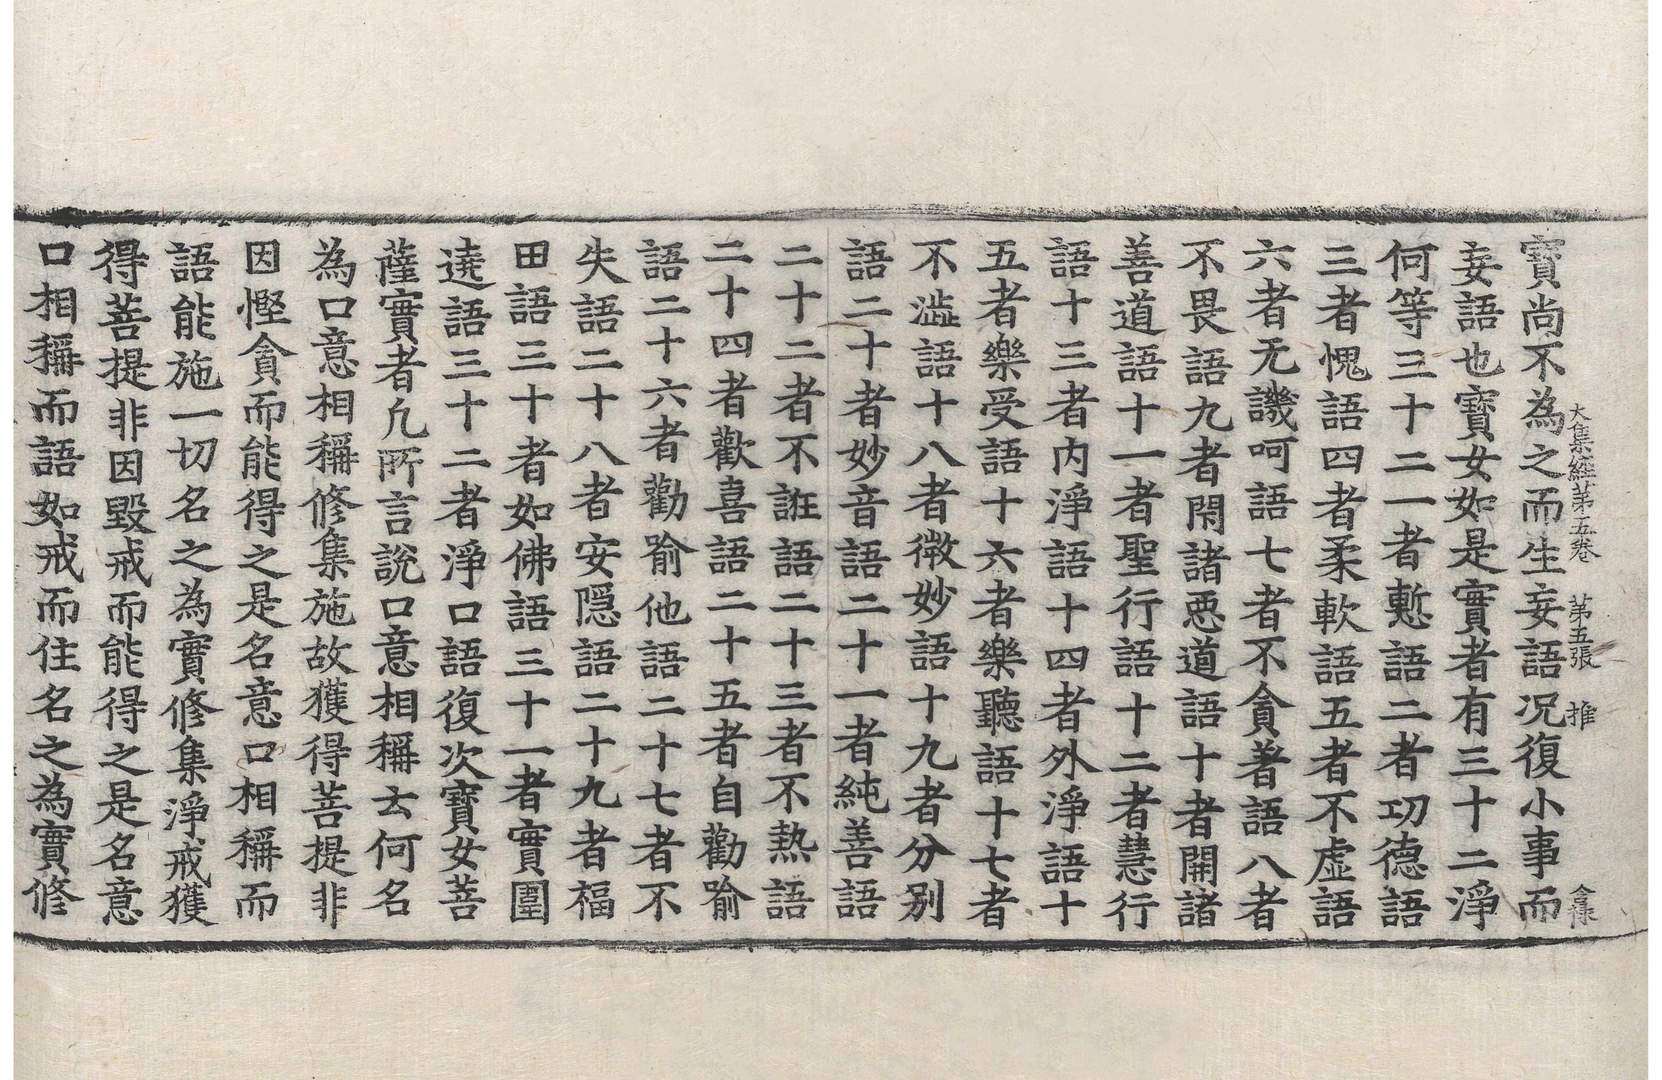 大集經第五卷　第五張　推　含祿
寶尚不為之而生妄語況復小事而
妄語也寶女如是實者有三十二淨
何等三十二一者慙語二者㓛德語
三者愧語四者柔軟語五者不虛語
六者无譏呵語七者不貪著語八者
不畏語九者閇諸惡道語十者開諸
善道語十一者聖行語十二者慧行
語十三者內淨語十四者外淨語十
五者樂受語十六者樂聽語十七者
不澁語十八者微妙語十九者分別
語二十者妙音語二十一者純善語
二十二者不誑語二十三者不熱語
二十四者歡喜語二十五者自勸喻
語二十六者勸喻他語二十七者不
失語二十八者安隱語二十九者福
田語三十者如佛語三十一者實圍
遶語三十二者淨口語復次寶女菩
薩實者凡所言說口意相稱云何名
為口意相稱修集施故獲得菩提非
因慳貪而能得之是名意口相稱而
語能施一切名之為實修集淨戒獲
得菩提非因毀戒而能得之是名意
口相稱而語如戒而住名之為實修